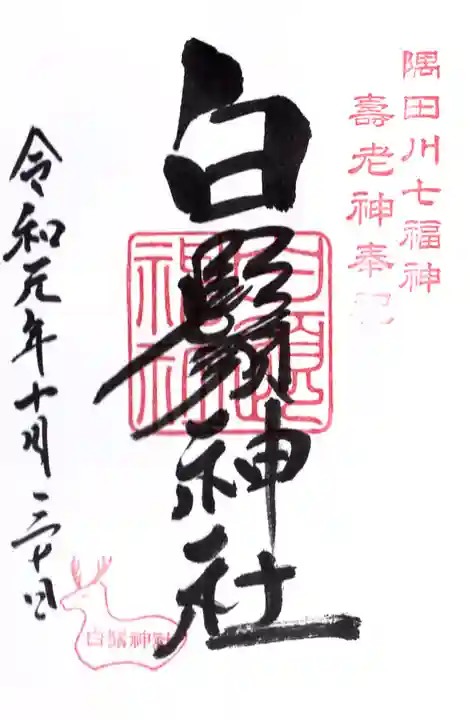 隅田川七福神
壽老神奉祀
白鬚神社
白鬚神社
令和元年十月三十日
白鬚神社